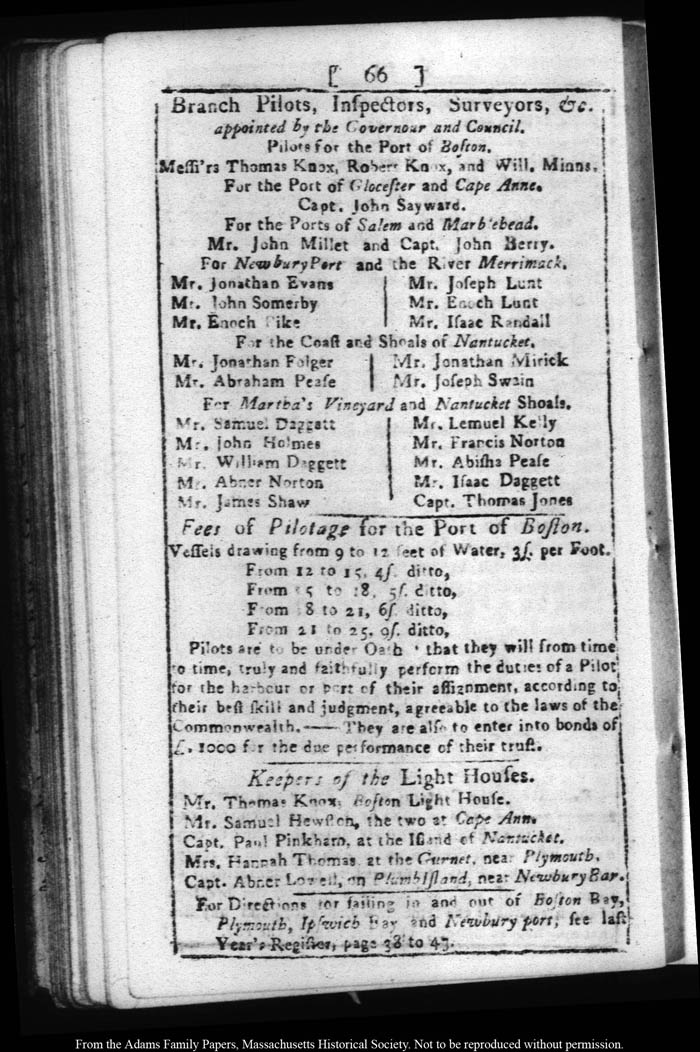 [ 66 ]
Branch Pilots, Inſpectors, Surveyors, &c.
appointed by the Governour and Council.
Pilots for the Port of Boſton.
Meſſ'rs Thomas Knox, Robert Knox, and Will. Minns.
For the Port of Gloceſter and Cape Anne.
Capt. John Sayward.
For the Ports of Salem and Marblehead.
Mr. John Millet and Capt. John Berry.
For NewburyPort and the River Merrimack.
Mr. Jonathan Evans | Mr. Joſeph Lunt
Mr. John Somerby | Mr. Enoch Lunt
Mr. Enoch Pike | Mr. Iſaac Randall
For the Coaſt and Shoals of Nantucket.
Mr. Jonathan Folger | Mr. Jonathan Mirick
Mr. Abraham Peaſe | Mr. Joſeph Swain
For Martha's Vineyard and Nantucket Shoals.
Mr. Samuel Daggatt | Mr. Lemuel Kelly
Mr. John Holmes | Mr. Francis Norton
Mr. William Daggett | Mr. Abiſha Peaſe
Mr. Abner Norton | Mr. Iſaac Daggett
Mr. James Shaw | Capt. Thomas Jones
Fees of Pilotage for the Port of Boſton.
Veſſels drawing from 9 to 12 feet of Water, 3ſ. per Foot.
From 12 to 15, 4ſ. ditto,
From 15 to 18, 5ſ. ditto,
From 18 to 21, 6ſ. ditto,
From 21 to 25, 9ſ. ditto,
Pilots are to be under Oath ' that they will from time
to time, truly and faithfully perform the duties of a Pilot
for the harbour or port of their aſſignment, according to
their beſt ſkill and judgment, agreeable to the laws of the
Commonwealth.—— They are alſo to enter into bonds of
£. 1000 for the due performance of their truſt.
Keepers of the Light Houſes.
Mr. Thomas Knox, Boſton Light Houſe.
Mr. Samuel Hewſton, the two at Cape Ann.
Capt. Paul Pinkham, at the Iſland of Nantucket.
Mrs. Hannah Thomas, at the Gurnet, near Plymouth.
Capt. Abner Lowell, on PlumbIſland, near NewburyBar.
For Directions for ſailing in and out of Boſton Bay,
Plymouth, Ipſwich Bay and Newbury port, ſee laſt
Year's Regiſter, page 38 to 47.
From the Adams Family Papers, Massachusetts Historical Society. Not to be reproduced without permission.